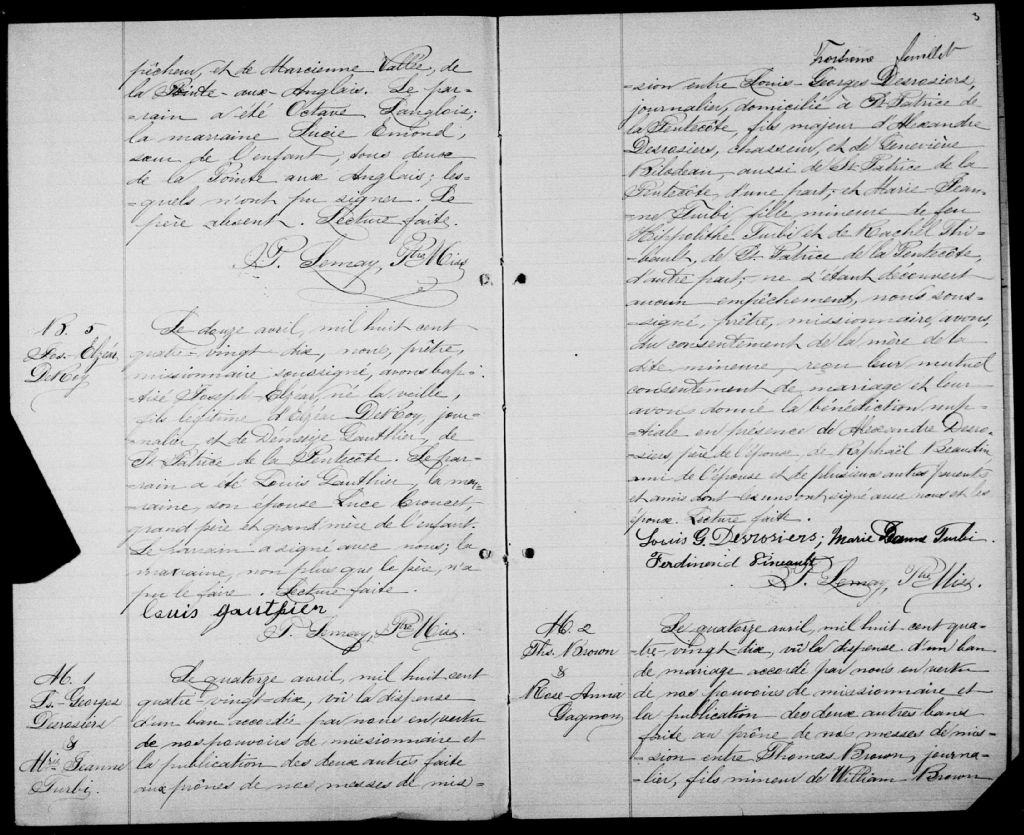 pêcheur, et de Marcienne Vallée, de
la Pointe-aux-Anglais. Le par-
-rain a été Octave Langlois;
la marraine Lucie Emond,
sœur de l'enfant; tous deux
de la Pointe aux Anglais; les-
-quels n'ont pu signer. Le
père absent. Lecture faite.
P. Lemay, Ptre Miss.
B. 5
Jos.-Elzéar
DeRoy
Le douze avril, mil huit cent
quatre-vingt-dix, nous, prêtre,
missionnaire soussigné, avons bap-
-tisé Joseph-Elzéar, né la veille,
fils légitime d'Elzéar DeRoy, jour-
-nalier, et de Démerise Gauthier, de
St. Patrice de la Pentecôte. Le par-
-rain a été Louis Gauthier, la mar-
-raine, son épouse Luce Crousset,
grand père et grand'mère de l'enfant.
Le parrain a signé avec nous; la
marraine, non plus que le père, n'a
pu le faire. Lecture faite.
Louis gauthier
P. Lemay, Ptre Miss.
M. 1
Ls.-Georges
Desrosiers
&
Mrie Jeanne
Turbi.
Le quatorze avril, mil huit cent
quatre-vingt-dix, vû la dispense
d'un ban accordée par nous en vertu
de nos pouvoirs de missionnaire et
la publication des deux autres faite
aux prônes de nos messes de mis-
3
Troisième feuillet
-sion entre Louis-Georges Desrosiers,
journalier, domicilié à St. Patrice de
la Pentecôte, fils majeur d'Alexandre
Desrosiers, chasseur, et de Geneviève
Bilodeau, aussi de St. Patrice de la
Pentecôte, d'une part; et Marie-Jean-
-ne Turbi fille mineure de feu
Hippolithe Turbi et de Rachel Thi-
-bault, de St. Patrice de la Pentecôte,
d'autre part; ne s'étant découvert
aucun empêchement, nous sous-
-signé, prêtre, missionnaire, avons,
du consentement de la mère de la
dite mineure, reçu leur mutuel
consentement de mariage et leur
avons donné la bénédiction nup-
-tiale en présence de Alexandre Desro-
-siers, père de l'époux, de Raphaël Beaudin
ami de l'épouse et de plusieurs autres parents
et amis dont uns ont signé avec nous et les
époux. Lecture faite.
Louis G. Desrosiers; Marie Jeanne Turbi
Ferdinend Vineault
P. Lemay, Ptre Miss.
M. 2
Ths. Brown
&
Rose-Anna
Gagnon
Le quatorze avril, mil huit cent qua-
-tre-vingt-dix, vû la dispense d'un ban
de mariage accordé par nous en vertu
de nos pouvoirs de missionnaire et
la publication des deux autres bans
faite au prône de nos messes de mis-
-sion entre Thomas Brown, journa-
-lier, fils mineur de William Brown